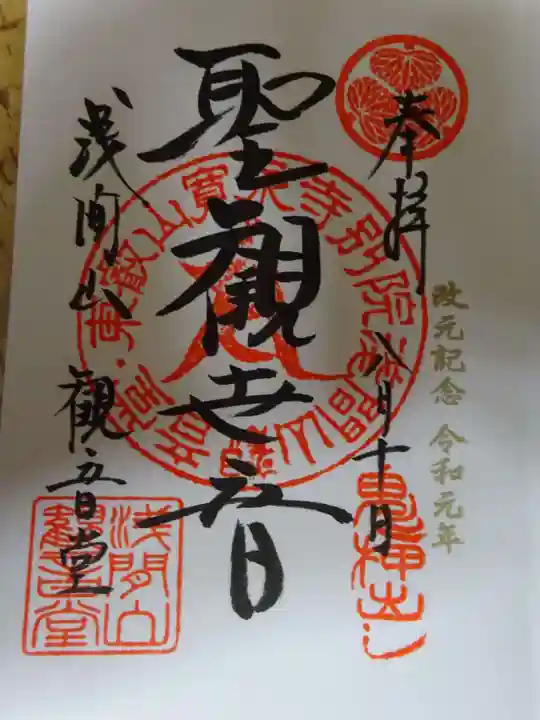 奉拝
八月十日
改元記念 令和元年
鬼押出し
聖観世音
東叡山寛永寺別院浅間山
浅間山 観音堂
浅間山
観音堂